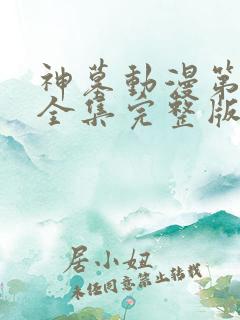 神墓動漫第
全集完整版
居小妞
未经同意禁止转载